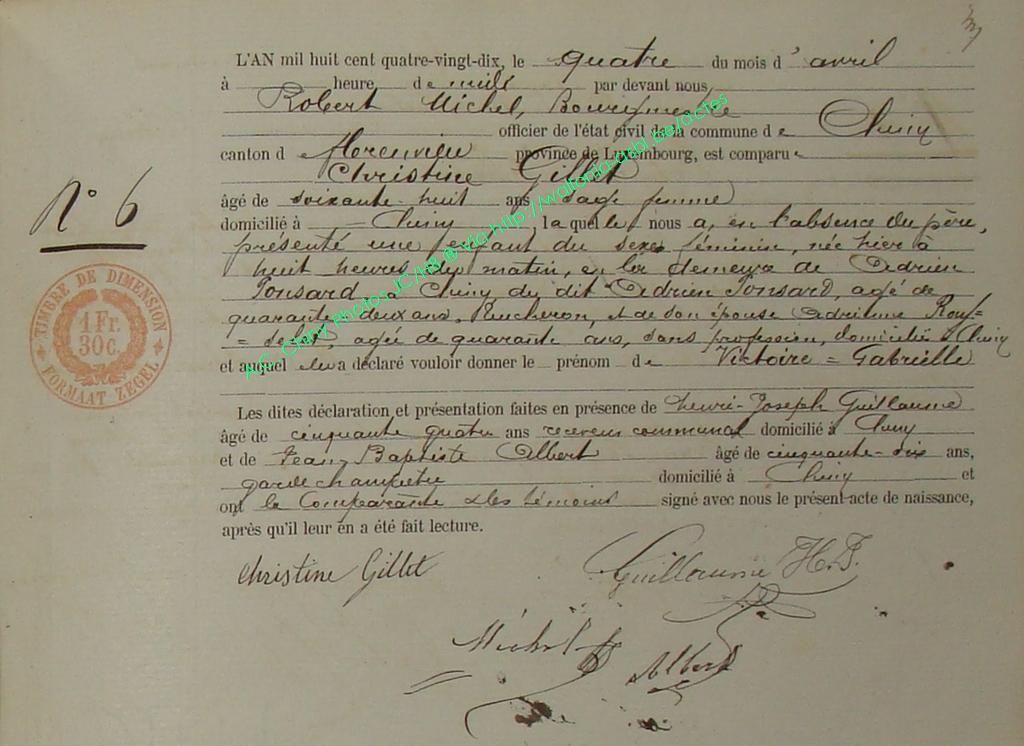 L'AN mil huit cent quatre-vingt-dix, le quatre du mois d'avril
à heure de midi par devant nous,
Robert Michel, Bourgmestre
officier de l'état civil de la commune de Chiny
canton de florenville province de Luxembourg, est comparue
Christine Gillet
âgé de soixante-huit ans sage femme
domicilié à = Chiny laquelle nous a, en l'absence du père,
présenté une enfant du sexe féminin, née hier à
huit heures du matin, en la demeure de Adrien
Ponsard à Chiny du dit Adrien Ponsard, agé de
quarante deux ans, Bucheron, et de son épouse Adrienne
agée de quarante ans, sans profession, domiciliés à Chiny
et auquel elle a déclaré vouloir donner le prénom de Victoire = Gabrielle
Les dites déclaration et présentation faites en présence de henri-Joseph Guillaume
âgé de cinquante quatre ans receveur communal domicilié à Chiny
et de Jean Baptiste Albert âgé de cinquante-six ans,
garde champêtre domicilié à Chiny et
ont la Comparante & les témoins signé avec nous le présent acte de naissance,
après qu'il leur en a été fait lecture.
N° 6
TIMBRE DE DIMENSION
1 Fr.
30 c.
FORMAAT ZEGEL
Christine Gillet
Guillaume H.J.
Michel R
Albert
Chiny Photos via http://wallonia-asbl.be/actes